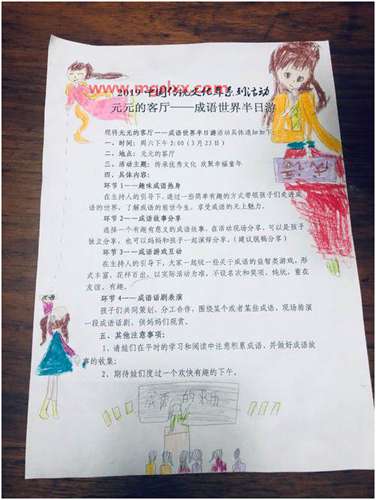 2019中国传统文化年系列活动
元元的客厅——成语世界半日游
现将元元的客厅——成语世界半日游活动具体通知如下：
一、时间：周六下午2:00（3月23日）
二、地点：元元的客厅
三、活动主题：传承优秀文化 欢聚幸福童年
四、具体内容：
环节1——趣味成语热身
在主持人的引导下，通过一些简单有趣的方式带领孩子们走进成
语的世界，了解成语的前世今生，享受成语的无上魅力。
环节2——成语故事分享
选择一个有趣有意义的成语故事，在活动现场分享，可以是孩子
独立分享，也可以妈妈和孩子一起演绎分享。（建议脱稿分享）
环节3——成语游戏互动
在主持人的引导下，大家一起玩一些关于成语的益智类游戏，形
式丰富，花样百出，以实际活动为准，不设名次和奖项，纯玩，重在
友谊，有趣。
环节4——成语话剧表演
孩子们共同策划、分工合作，围绕某个或者某些成语，现场排演
一段成语话剧，供妈妈们观赏。
五、其他注意事项：
1、请娃们在平时的学习和阅读中注意积累成语，并做好成语故
事的收集；
2、期待娃们度过一个欢快有趣的下午。
成语的来历